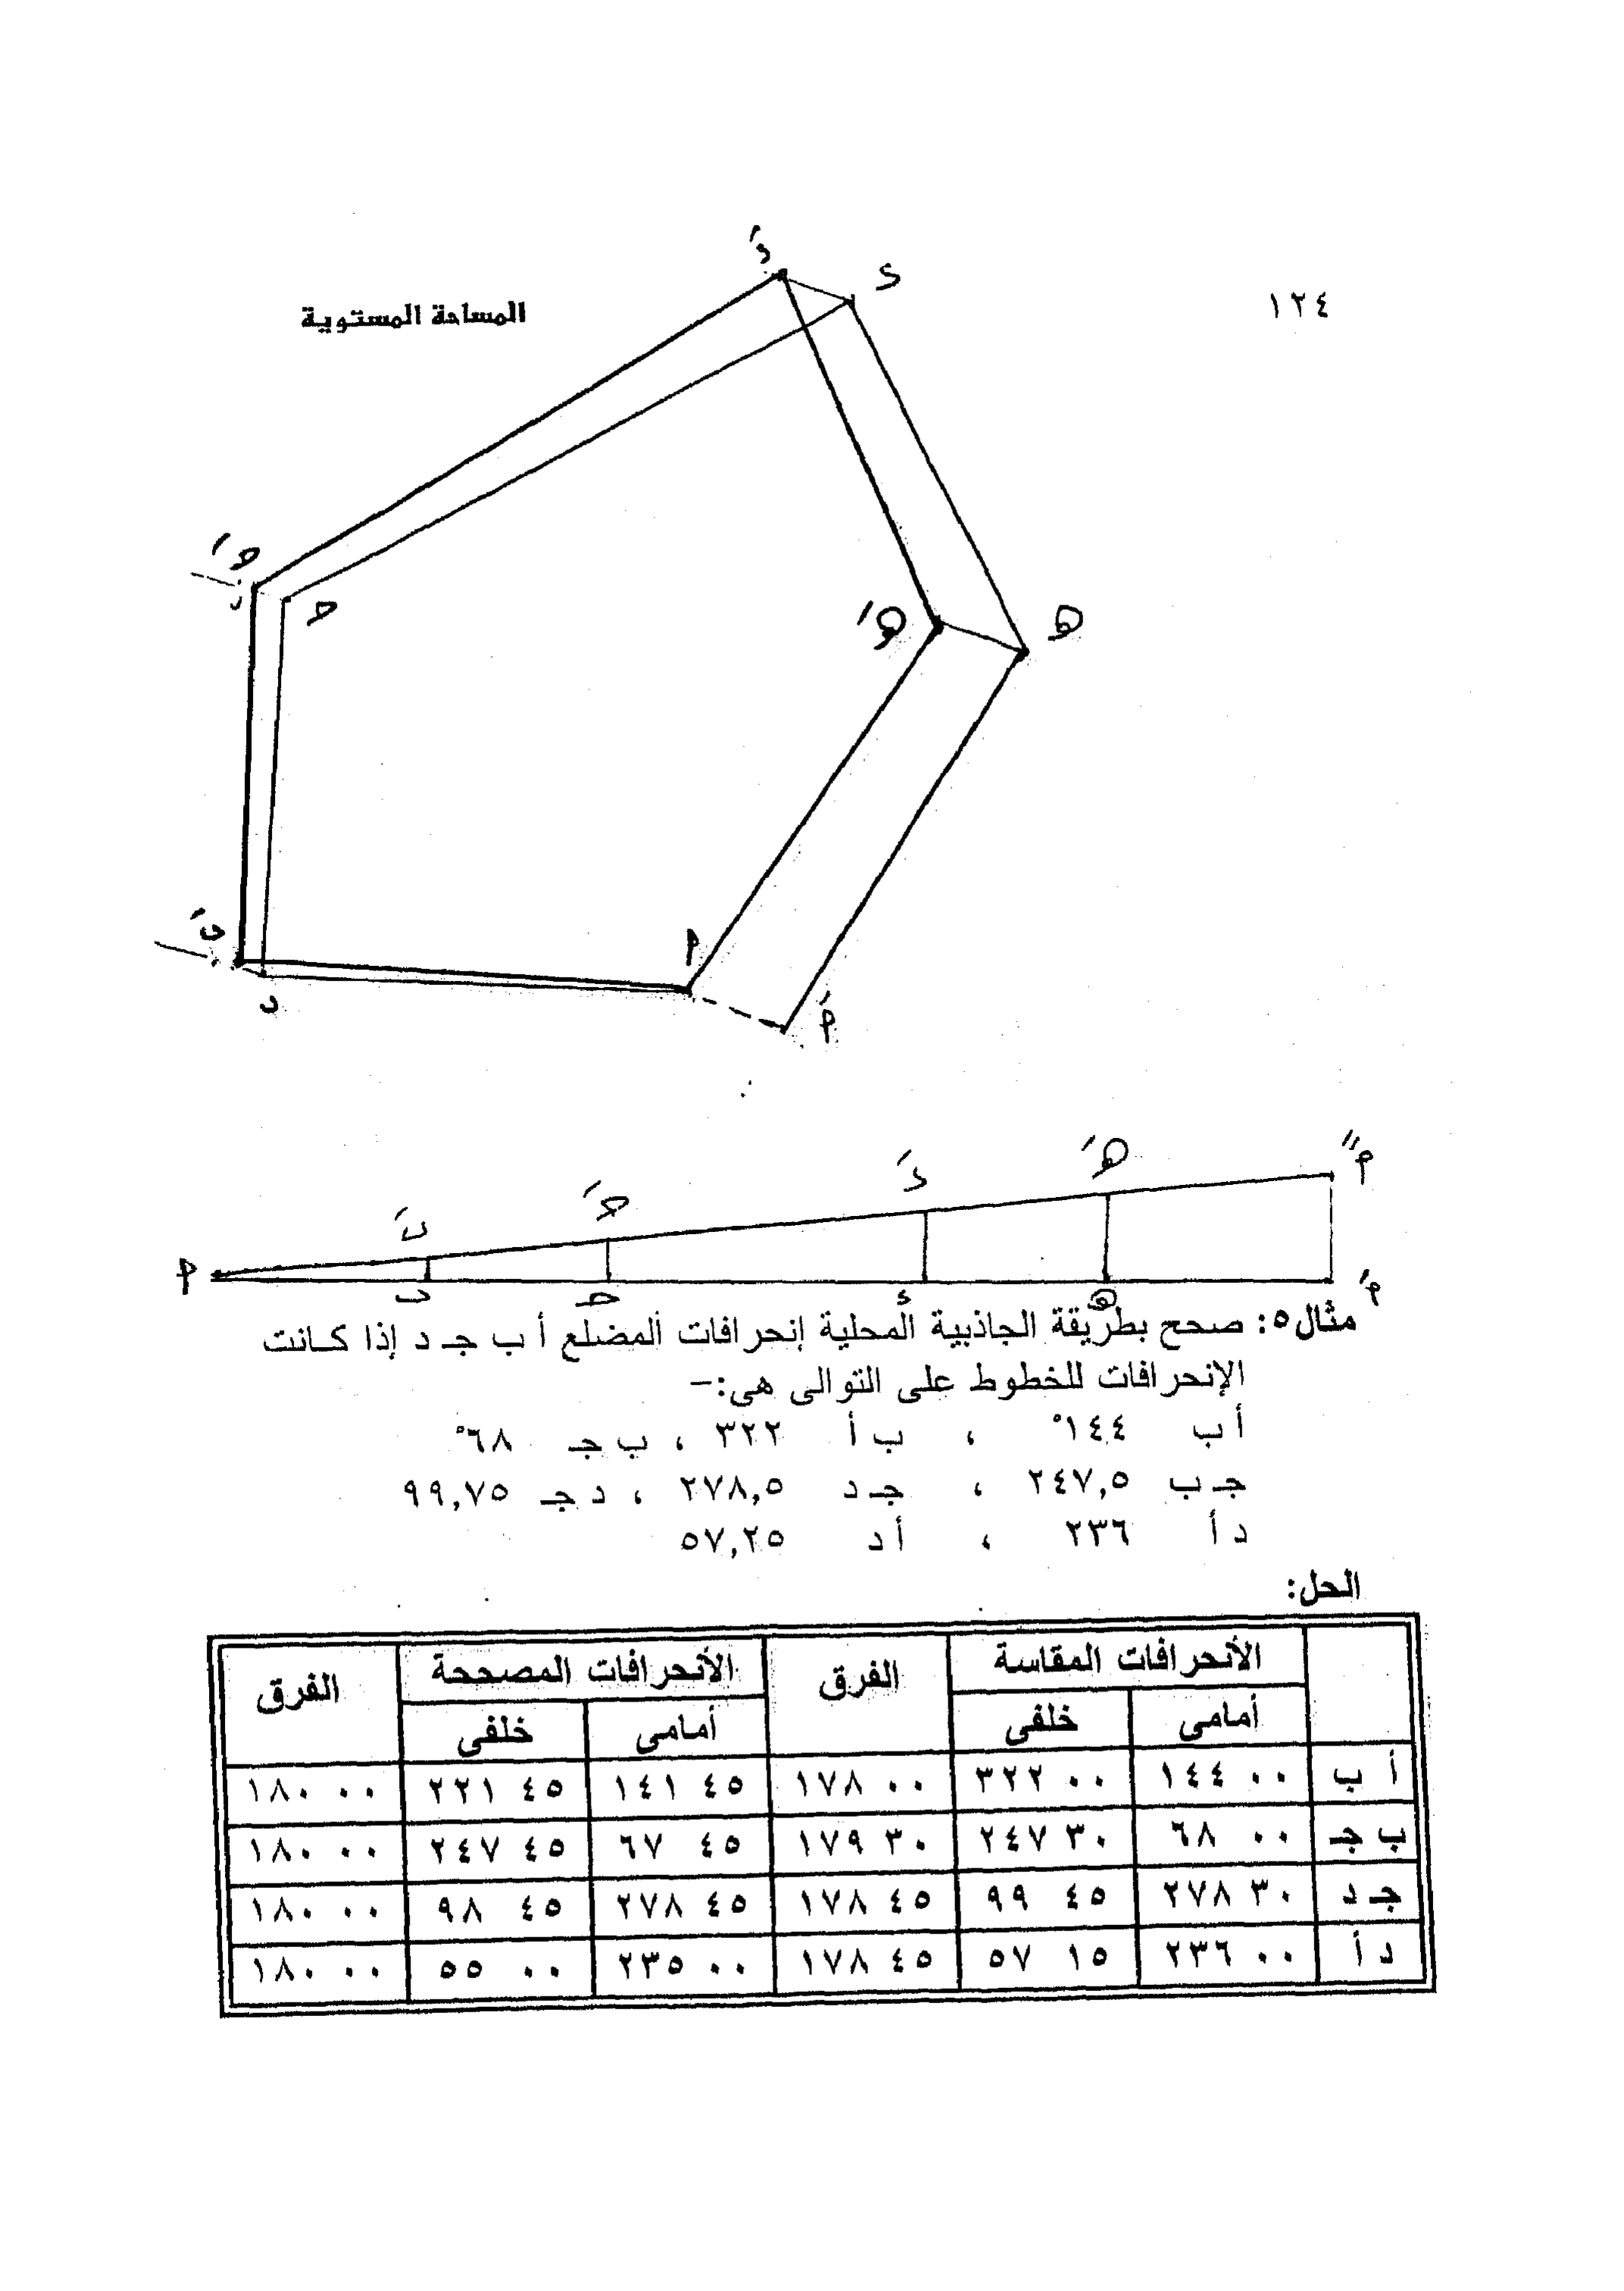 ١٢٤
المساحة المستوية
دَ
د
جـَ
جـ
هـَ
هـ
بَ
ب
أ
أَ
أ
بَ
جـَ
دَ
هـَ
أً
ب
جـ
د
هـ
أَ
مثال٥: صحح بطريقة الجاذبية المحلية إنحرافات المضلع أ ب جـ د إذا كانت
الإنحرافات للخطوط على التوالى هى:-
أ ب ١٤٤° ، ب أ ٣٢٢ ، ب جـ ٦٨°
جـ ب ٢٤٧,٥ ، جـ د ٢٧٨,٥ ، د جـ ٩٩,٧٥
د أ ٢٣٦ ، أ د ٥٧,٢٥
الحل:
الأنحرافات المقاسة الفرق الأنحرافات المصححة الفرق
أمامى خلفى أمامى خلفى
أ ب ١٤٤ ٠٠ ٣٢٢ ٠٠ ١٧٨ ٠٠ ١٤١ ٤٥ ٢٢١ ٤٥ ١٨٠ ٠٠
ب جـ ٦٨ ٠٠ ٢٤٧ ٣٠ ١٧٩ ٣٠ ٦٧ ٤٥ ٢٤٧ ٤٥ ١٨٠ ٠٠
جـ د ٢٧٨ ٣٠ ٩٩ ٤٥ ١٧٨ ٤٥ ٢٧٨ ٤٥ ٩٨ ٤٥ ١٨٠ ٠٠
د أ ٢٣٦ ٠٠ ٥٧ ١٥ ١٧٨ ٤٥ ٢٣٥ ٠٠ ٥٥ ٠٠ ١٨٠ ٠٠